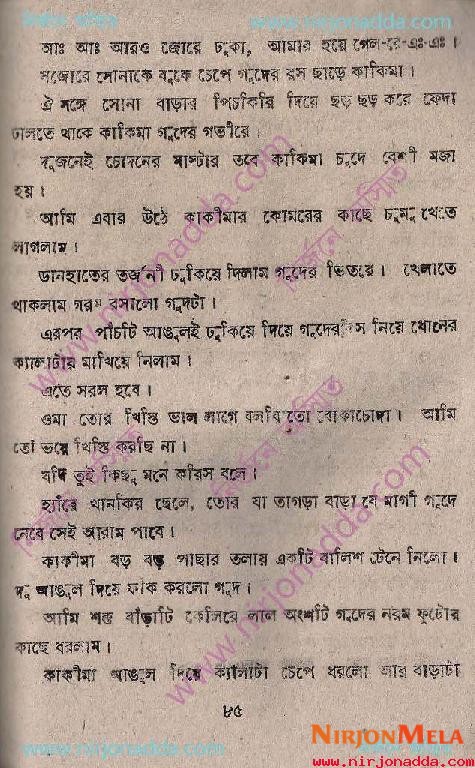 নির্জন আড্ডা www.nirjonadda.com
আঃ আঃ আরও জোরে ঢুকা, আমার হয়ে গেল-রে-এঃ-এঃ।
সজোরে সোনাকে বুকে চেপে গুদের রস ছাড়ে কাকিমা।
ঐ সঙ্গে সোনা বাড়ার পিচকিরি দিয়ে ছড় ছড় করে ফেদা
ঢালতে থাকে কাকিমা গুদের গভীরে।
দুজনেই চোদনের মাস্টার তবে কাকিমা চুদে বেশী মজা
হয়।
আমি এবার উঠে কাকীমার কোমরের কাছে চুমু খেতে
লাগলাম।
ডানহাতের তর্জনী ঢুকিয়ে দিলাম গুদের ভিতরে। খেলাতে
থাকলাম গরম রসালো গুদটা।
এরপর পাঁচটি আঙুলই ঢুকিয়ে দিয়ে গুদের রস নিয়ে ধোনের
ক্যালাটার মাখিয়ে নিলাম।
এতে সরস হবে।
ওমা তোর খিস্তি ভাল লাগে বলবি তো বোকাচোদা। আমি
তো ভয়ে খিস্তি করছি না।
যদি তুই কিছু মনে করিস বলে।
হ্যাঁরে খানকির ছেলে, তোর যা তাগড়া বাড়া যে মাগী গুদে
নেবে সেই আরাম পাবে।
কাকীমা বড় বড় পাছার তলার একটি বালিশ টেনে নিলো।
দু আঙুল দিয়ে ফাঁক করলো গুদ।
আমি শক্ত বাঁড়াটি কেলিয়ে লাল অংশটি গুদের নরম ফুটোর
কাছে ধরলাম।
কাকীমা আঙুল দিয়ে ক্যালাটা চেপে ধরলো আর বাড়াটা
৮৫
www.nirjonadda.com
NIRJONMELA
www.nirjonadda.com